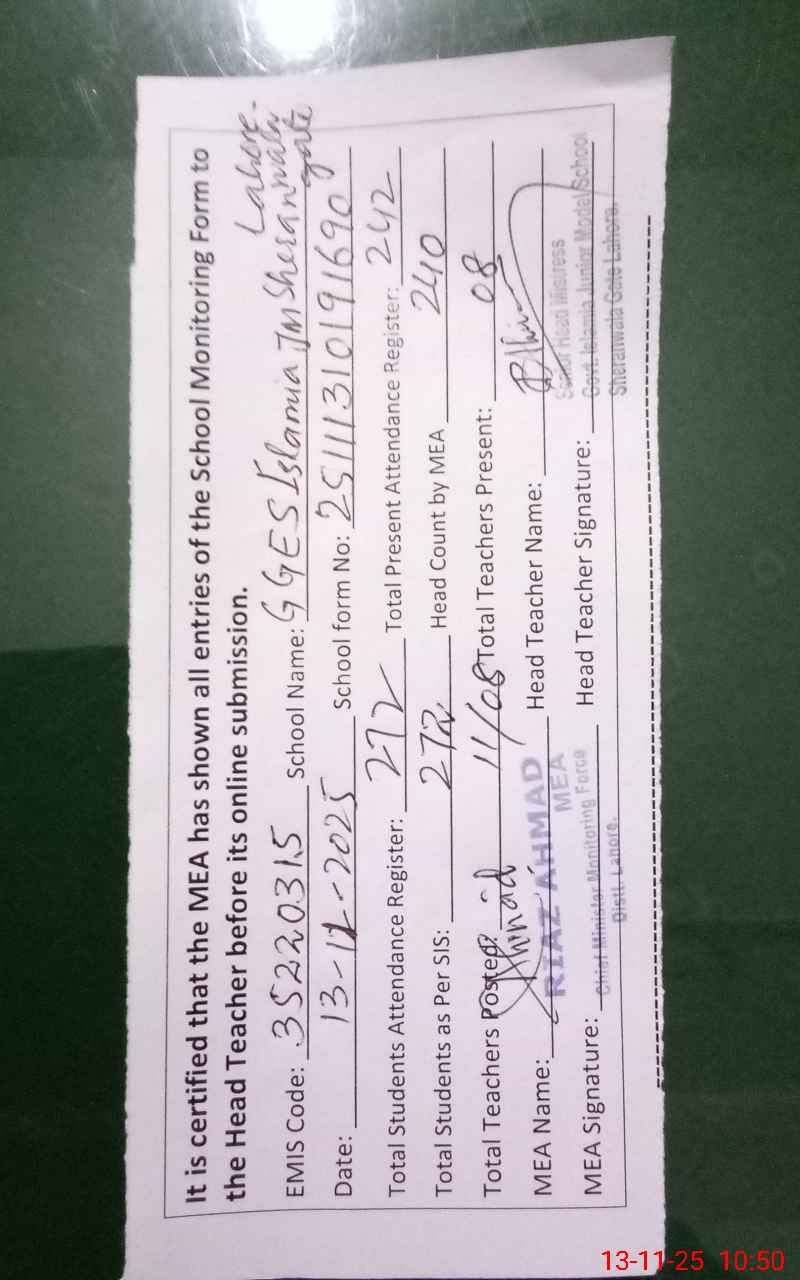 It is certified that the MEA has shown all entries of the School Monitoring Form to
the Head Teacher before its online submission.
Lahore.
EMIS Code: 35220315 School Name: GGES Islamia JM Sheranwala gate
Date: 13-11-2025 School form No: 25111310191690
Total Students Attendance Register: 272 Total Present Attendance Register: 242
Total Students as Per SIS: 272 Head Count by MEA 240
Total Teachers Posted: 11/08 Total Teachers Present: 08
MEA Name: RIAZ AHMAD Head Teacher Name:
MEA
Senior Head Mistress
MEA Signature: Chief Minister Monitoring Force Head Teacher Signature: Govt. Islamia Junior Model School
Distt. Lahore.
Sheranwala Gate Lahore.
13-11-25 10:50